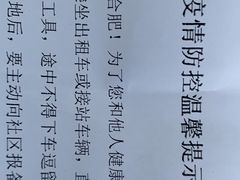 疫情防控温馨提示
合肥！为了您和他人健康
乘坐出租车或接站车辆，直
工具，途中不得下车逗留
地后，要主动向社区报备